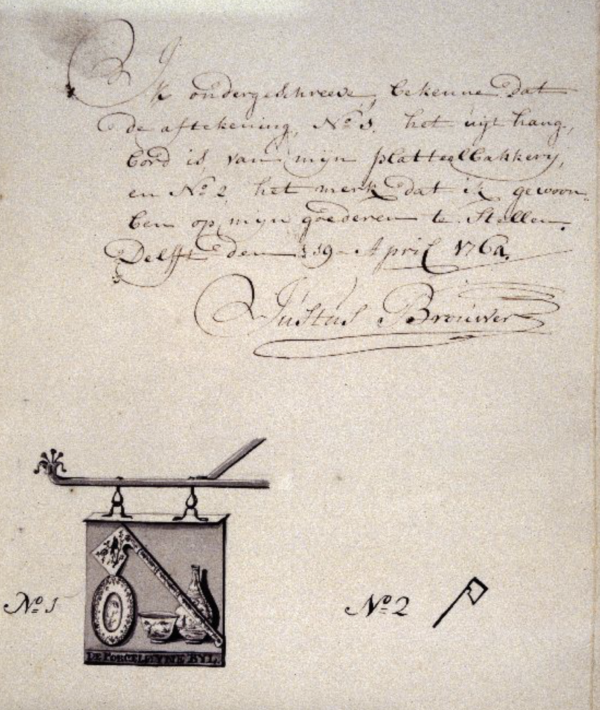 Ik ondergeschreeve, bekenne dat
de aftekening, No 1, het uijt hang,
bord is van mijn platteelbakkery,
en No 2, het merk dat ik gewoon
ben op mijn goederen te Stellen.
Delfft den 19 April 1764.
Justus Brouwer
DE PORCELEYNE BYL
No 1
No 2